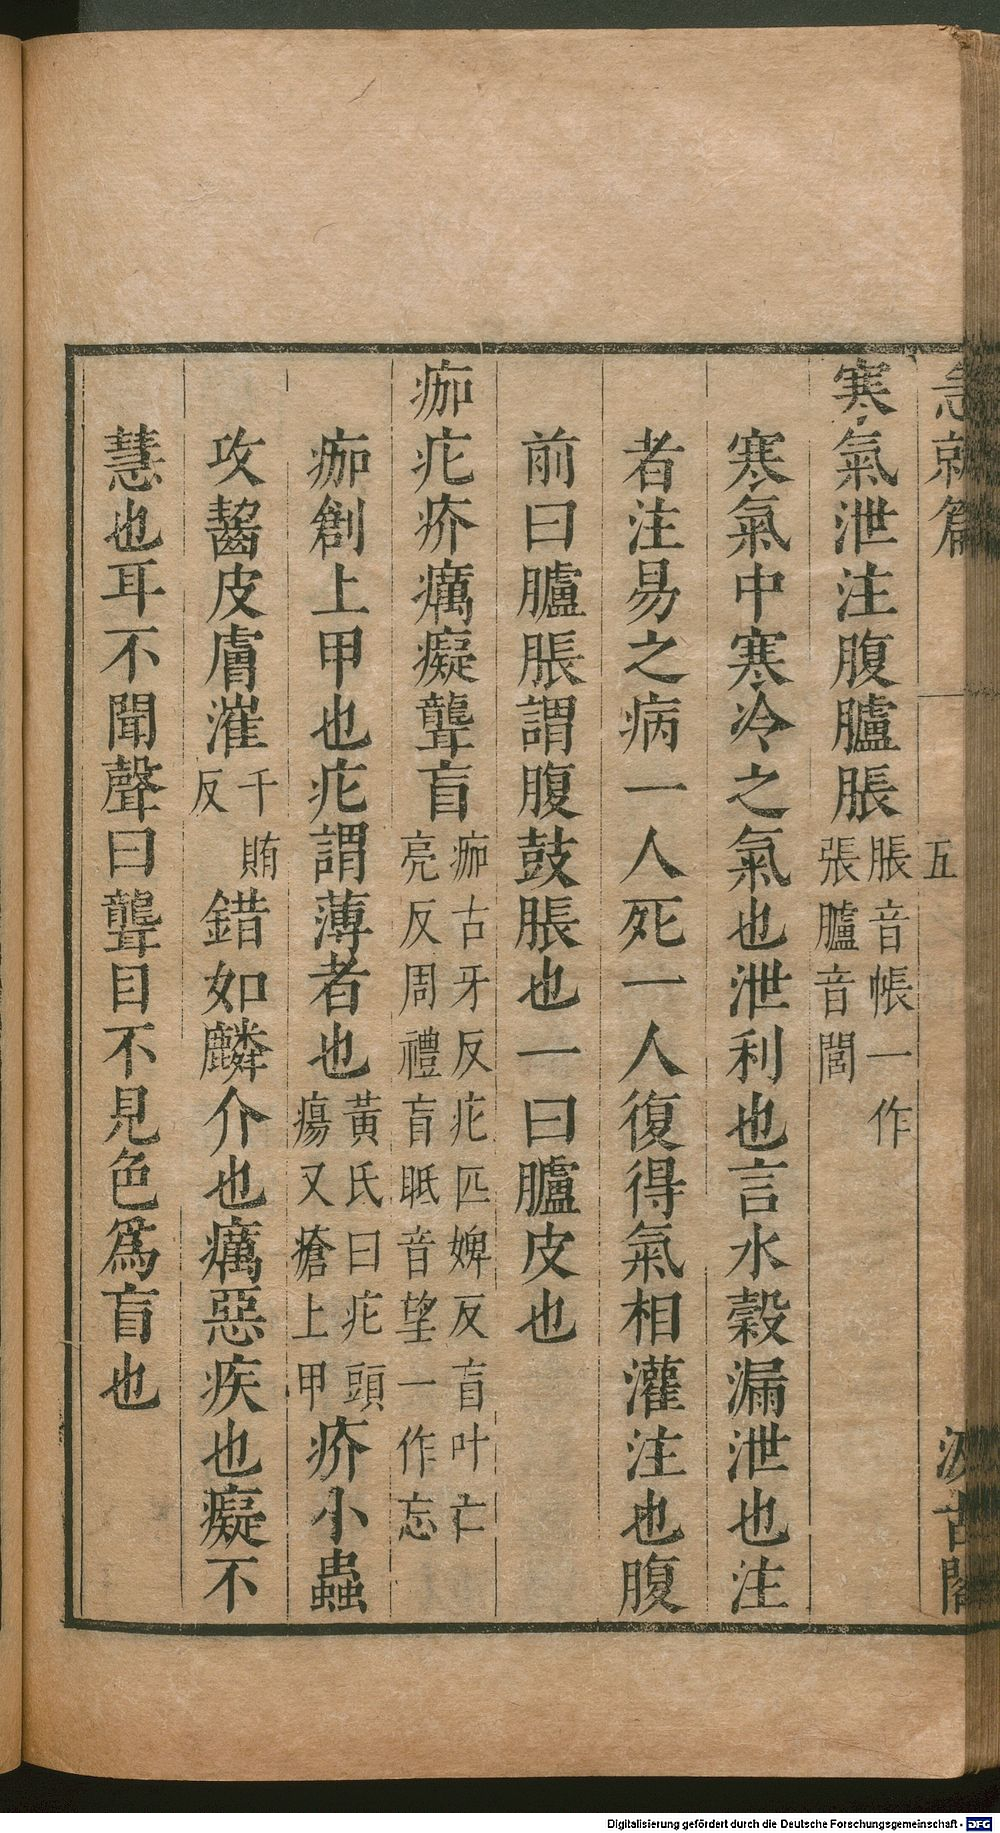 急就篇 五 汲古閣
寒氣泄注腹臚脹 脹音帳一作
張臚音閭
寒氣中寒冷之氣也泄利也言水穀漏泄也注
者注易之病一人死一人復得氣相灌注也腹
前曰臚脹謂腹鼓脹也一曰臚皮也
痂疕疥癘癡聾盲 痂古牙反疕匹婢反盲叶亡
亮反周禮盲眂音望一作忘
痂創上甲也疕謂薄者也 黃氏曰疕頭
瘍又瘡上甲 疥小蟲
攻齧皮膚漼 千賄
反 錯如麟介也癘惡疾也癡不
慧也耳不聞聲曰聾目不見色爲盲也
Digitalisierung gefördert durch die Deutsche Forschungsgemeinschaft - DFG